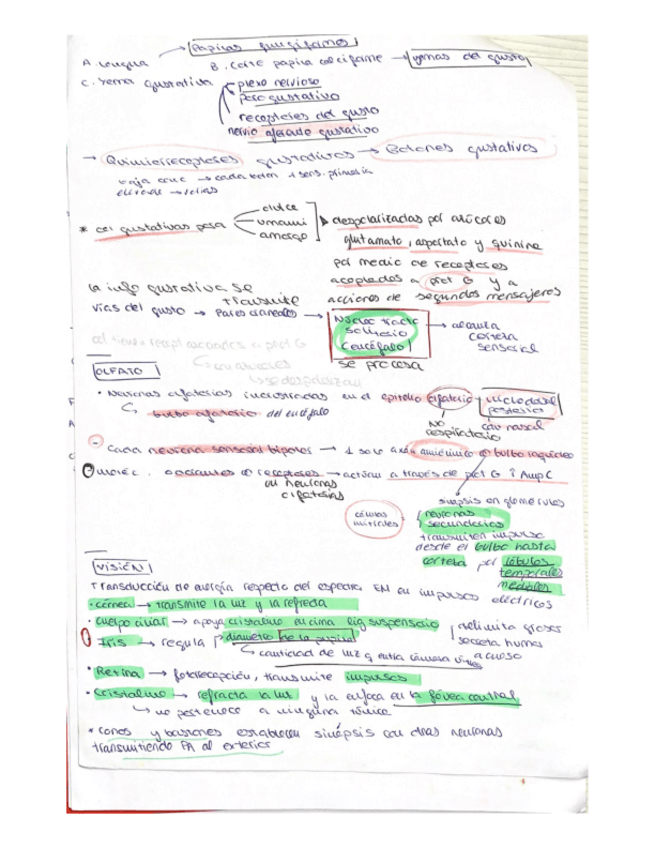 Papilas fungiformes
A. Lengua B. Corte papila caliciforme → yemas del gusto
C. Yema gustativa plexo nervioso
poro gustativo
receptores del gusto
nervio aferente gustativo
→ Quimiorreceptores gustativos → Botones gustativos
→ cada botón 1 sens. primaria
* cel gustativas para
dulce
umami
amargo
despolarizadas por azúcares
glutamato, aspartato y quinina
por medio de receptores
acoplados a prot G y a
acciones de segundos mensajeros
la info gustativa se
transmite
vías del gusto → Pares craneales →
Núcleo tracto
solitario
(encéfalo)
→
corteza
sensorial
se procesa
OLFATO
• Neuronas olfatorias incrustadas en el epitelio olfatorio
posterior
cav nasal
bulbo olfatorio del encéfalo
NO
respiratorio
- Cada neurona sensorial bipolar → 1 solo axón amielínico → bulbo raquídeo
• moléc. a receptores → actúan a través de prot G ↑ Amp C
en neuronas
olfatorias
sinapsis en glomérulos
células
mitrales
neuronas
secundarias
transmiten impulso
desde el bulbo hasta
corteza por lóbulos
temporales
mediales
VISIÓN
Transducción de energía respecto del espectro EM en impulsos
eléctricos
• córnea → transmite la luz y la refracta
• cuerpo ciliar → apoya cristalino encima lig suspensorio
secreta humor
acuoso
Iris → regula diámetro de la pupila
cantidad de luz q entra
• Retina → fotorrecepción, transmite impulsos
• Cristalino → refracta la luz y la enfoca en la fóvea central
↳ no pertenece a ninguna túnica
* conos y bastones establecen sinápsis con otras neuronas
transmitiendo PA al exterior
4